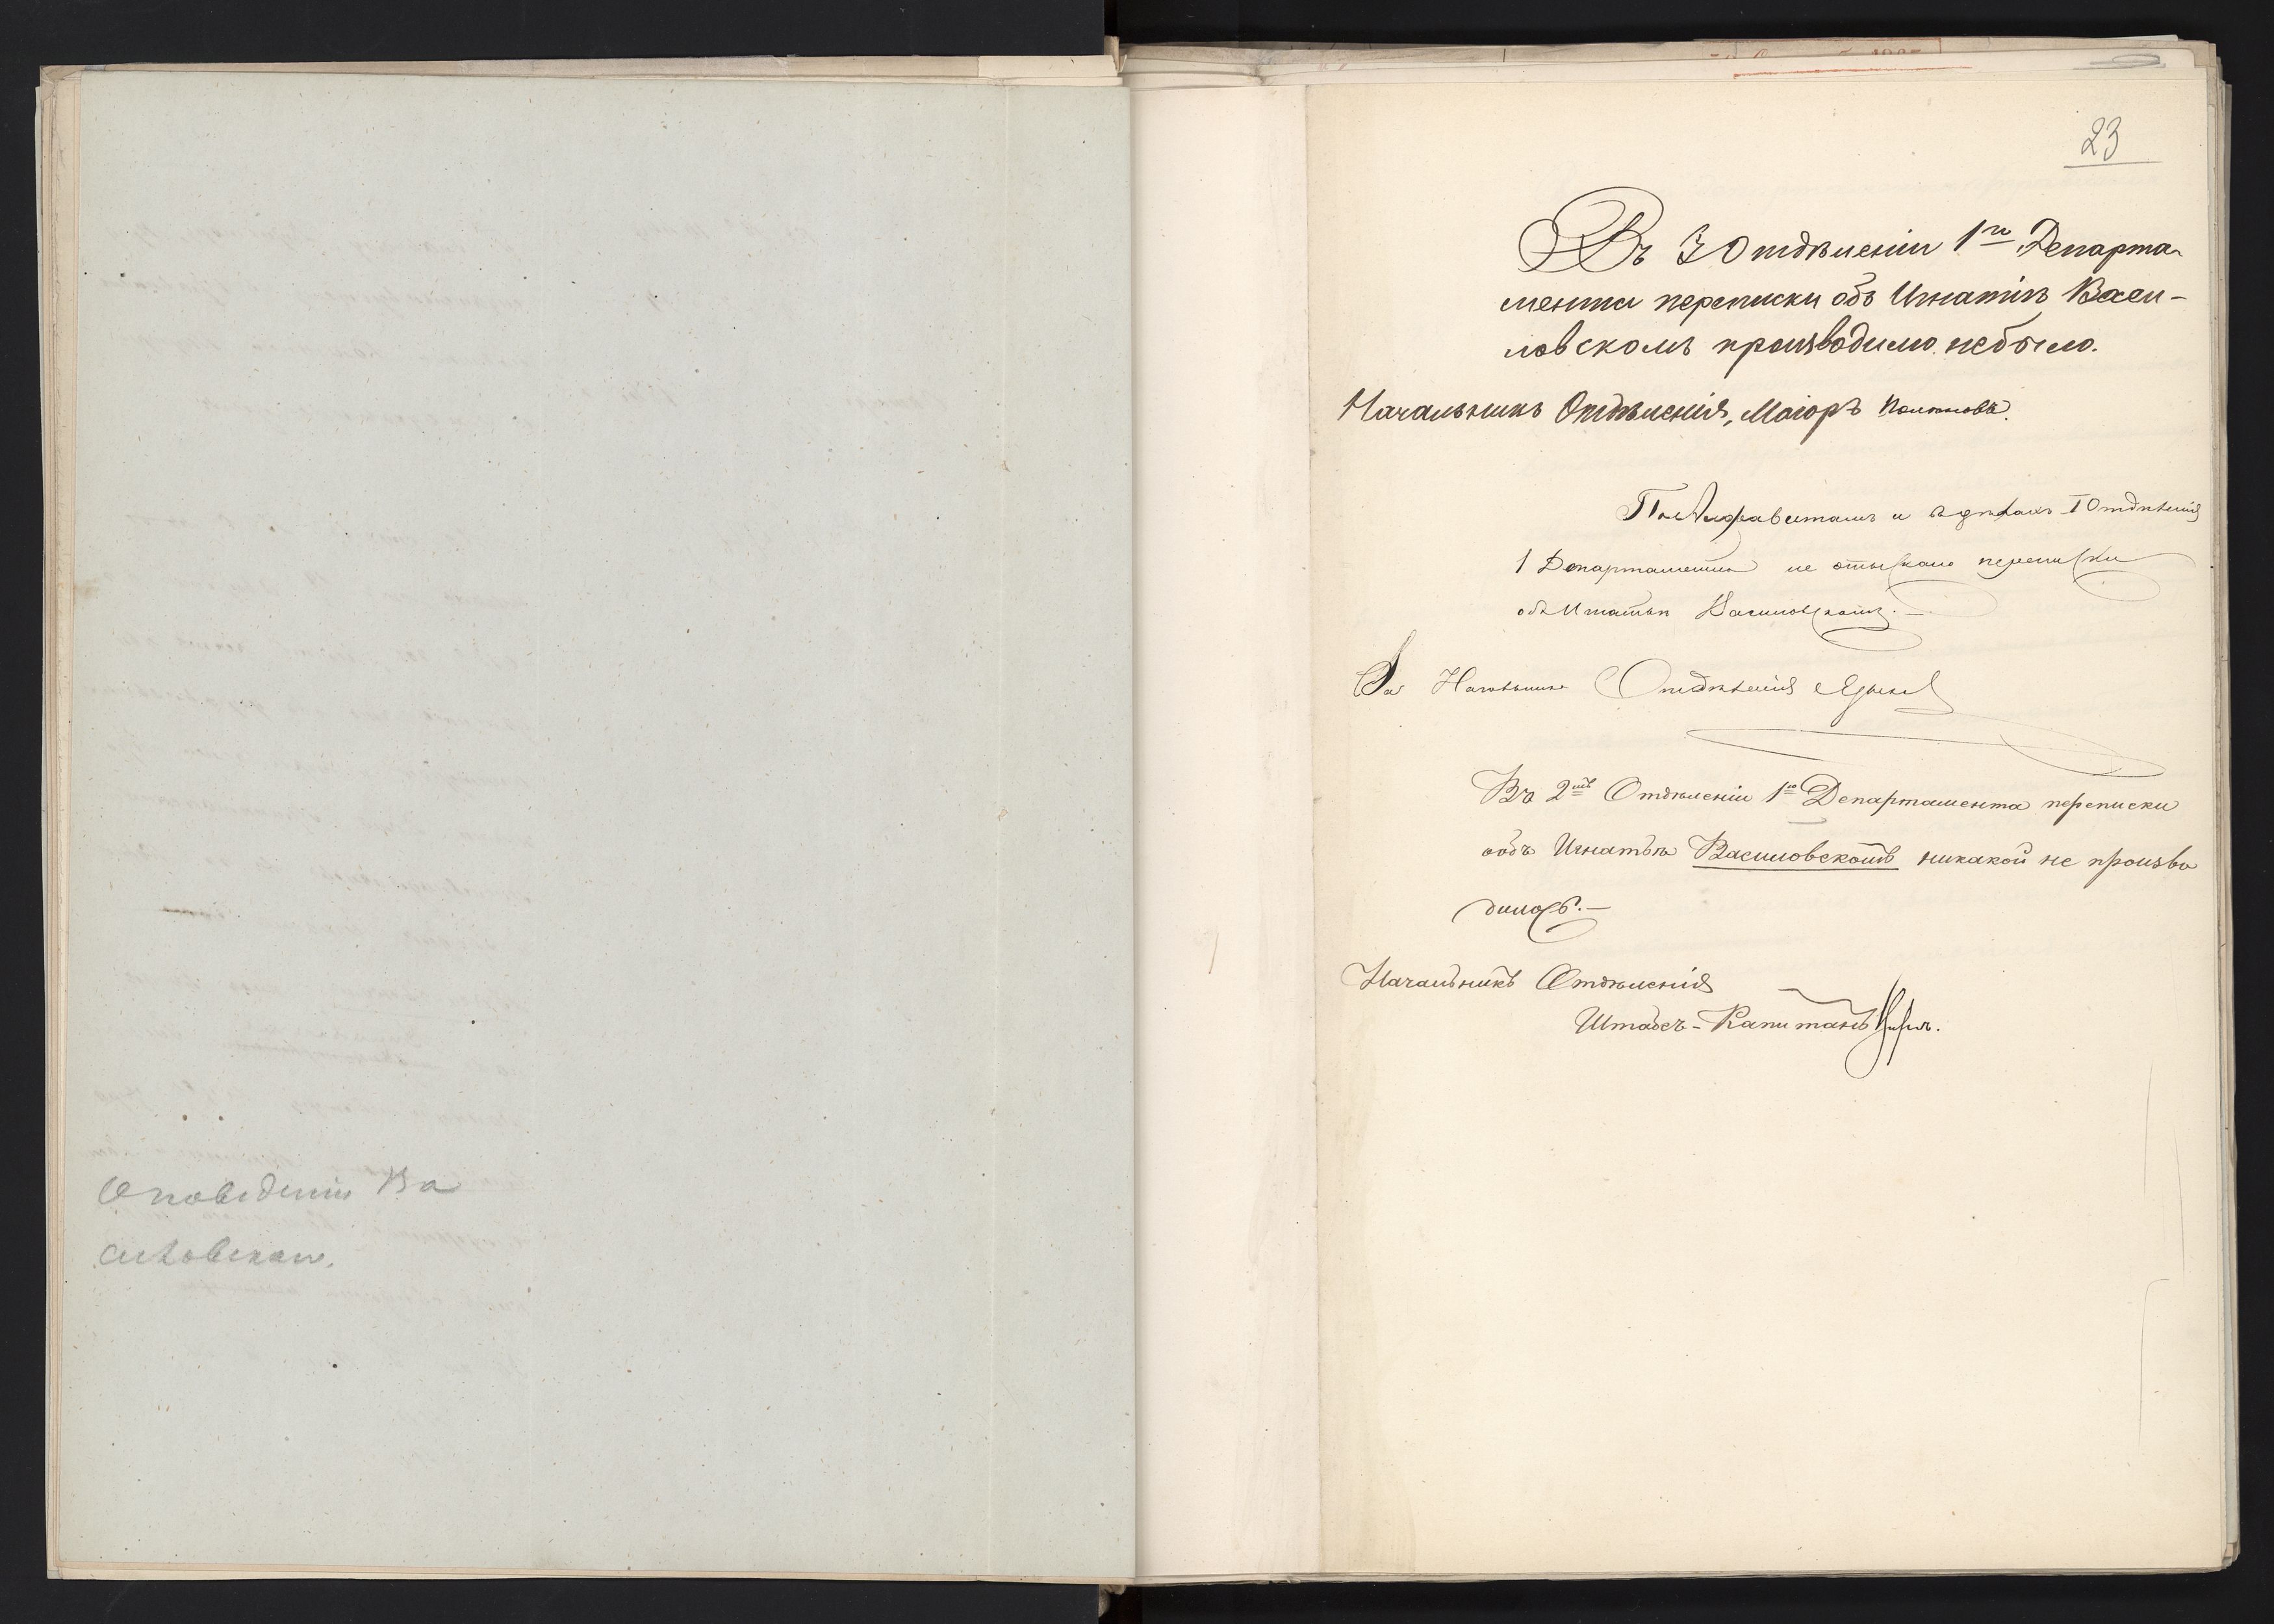 О поведеніи Ва
силовскаго.
23
Въ 3 Отдѣленіи 1го Департа-
мента переписки объ Игнатіѣ Васи-
ловскомъ производимо небыло.
Начальникъ Отдѣленія, Маіоръ
По Алфавитамъ и дѣламъ I Отдѣленія
1 Департамента не отыскано переписки
объ Игнатьѣ Василовскомъ. —
За Начальника Отдѣленія
Въ 2мъ Отдѣленіи 1го Департамента переписки
объ Игнатьѣ Василовскомъ никакой не произво
дилось. —
Начальникъ Отдѣленія
Штабсъ-Капитанъ